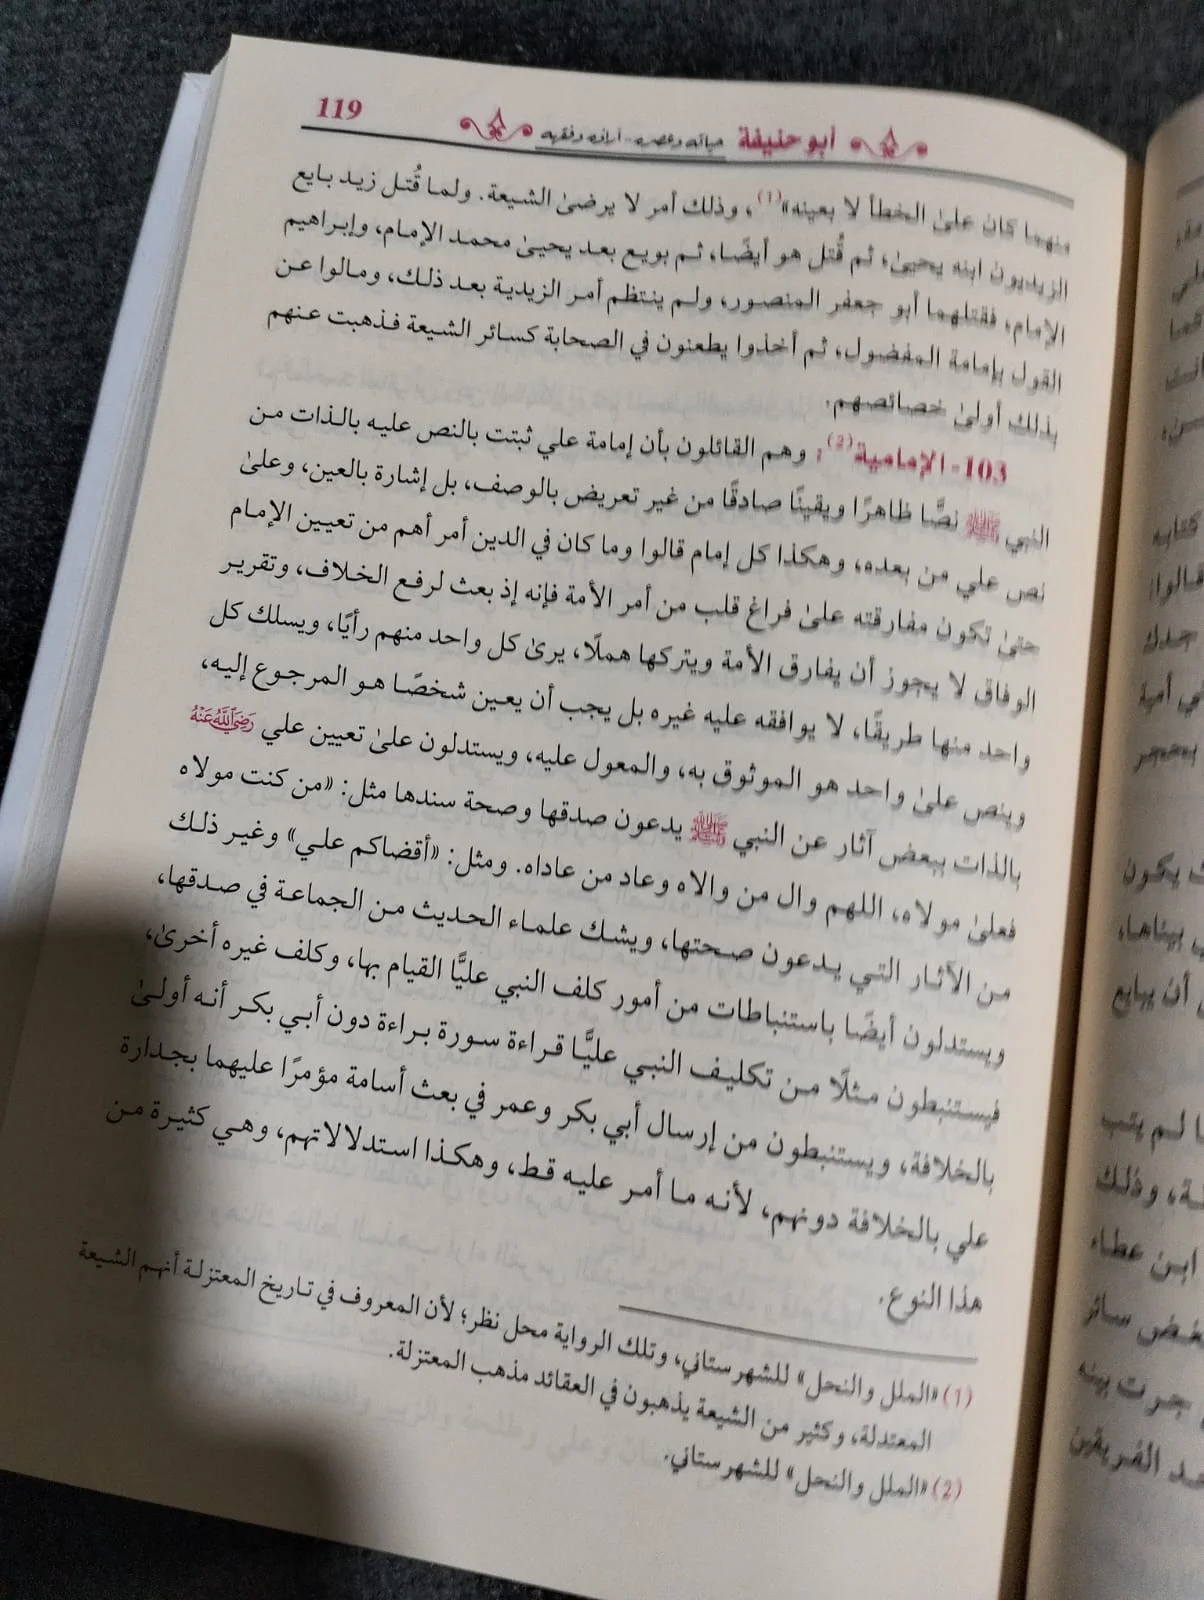 119
أبو حنيفة حياته وعصره - آراؤه وفقهه
منهما كان على الخطأ لا بعينه»(1)، وذلك أمر لا يرضىٰ الشيعة. ولما قُتل زيد بايع
الزيديون ابنه يحيىٰ، ثم قُتل هو أيضًا، ثم بويع بعد يحيىٰ محمد الإمام، وإبراهيم
الإمام، فقتلهما أبو جعفر المنصور، ولم ينتظم أمر الزيدية بعد ذلك، ومالوا عن
القول بإمامة المفضول، ثم أخذوا يطعنون في الصحابة كسائر الشيعة فذهبت عنهم
بذلك أولىٰ خصائصهم.
103- الإمامية(2): وهم القائلون بأن إمامة علي ثبتت بالنص عليه بالذات من
النبي ﷺ نصًّا ظاهرًا ويقينًا صادقًا من غير تعريض بالوصف، بل إشارة بالعين، وعلىٰ
نص علي من بعده، وهكذا كل إمام قالوا وما كان في الدين أمر أهم من تعيين الإمام
حتىٰ تكون مفارقته علىٰ فراغ قلب من أمر الأمة فإنه إذ بعث لرفع الخلاف، وتقرير
الوفاق لا يجوز أن يفارق الأمة ويتركها هملًا، يرىٰ كل واحد منهم رأيًا، ويسلك كل
واحد منها طريقًا، لا يوافقه عليه غيره بل يجب أن يعين شخصًا هو المرجوع إليه،
وينص علىٰ واحد هو الموثوق به، والمعول عليه، ويستدلون علىٰ تعيين علي رَضِيَ اللَّهُ عَنْهُ
بالذات ببعض آثار عن النبي ﷺ يدعون صدقها وصحة سندها مثل: «من كنت مولاه
فعلىٰ مولاه، اللهم وال من والاه وعاد من عاداه. ومثل: «أقضاكم علي» وغير ذلك
من الآثار التي يدعون صحتها، ويشك علماء الحديث من الجماعة في صدقها،
ويستدلون أيضًا باستنباطات من أمور كلف النبي عليًّا القيام بها، وكلف غيره أخرىٰ،
فيستنبطون مثلًا من تكليف النبي عليًّا قراءة سورة براءة دون أبي بكر أنه أولىٰ
بالخلافة، ويستنبطون من إرسال أبي بكر وعمر في بعث أسامة مؤمرًا عليهما بجدارة
علي بالخلافة دونهم، لأنه ما أمر عليه قط، وهكذا استدلالاتهم، وهي كثيرة من
هذا النوع.
(1) «الملل والنحل» للشهرستاني، وتلك الرواية محل نظر؛ لأن المعروف في تاريخ المعتزلة أنهم الشيعة
المعتدلة، وكثير من الشيعة يذهبون في العقائد مذهب المعتزلة.
(2) «الملل والنحل» للشهرستاني.
كتابه
قالوا:
جدك
في أمية
يكون
أن يبايع
لم يتب
وذلك
ابن عطاء
سائر
جرت بينه
الفريقين